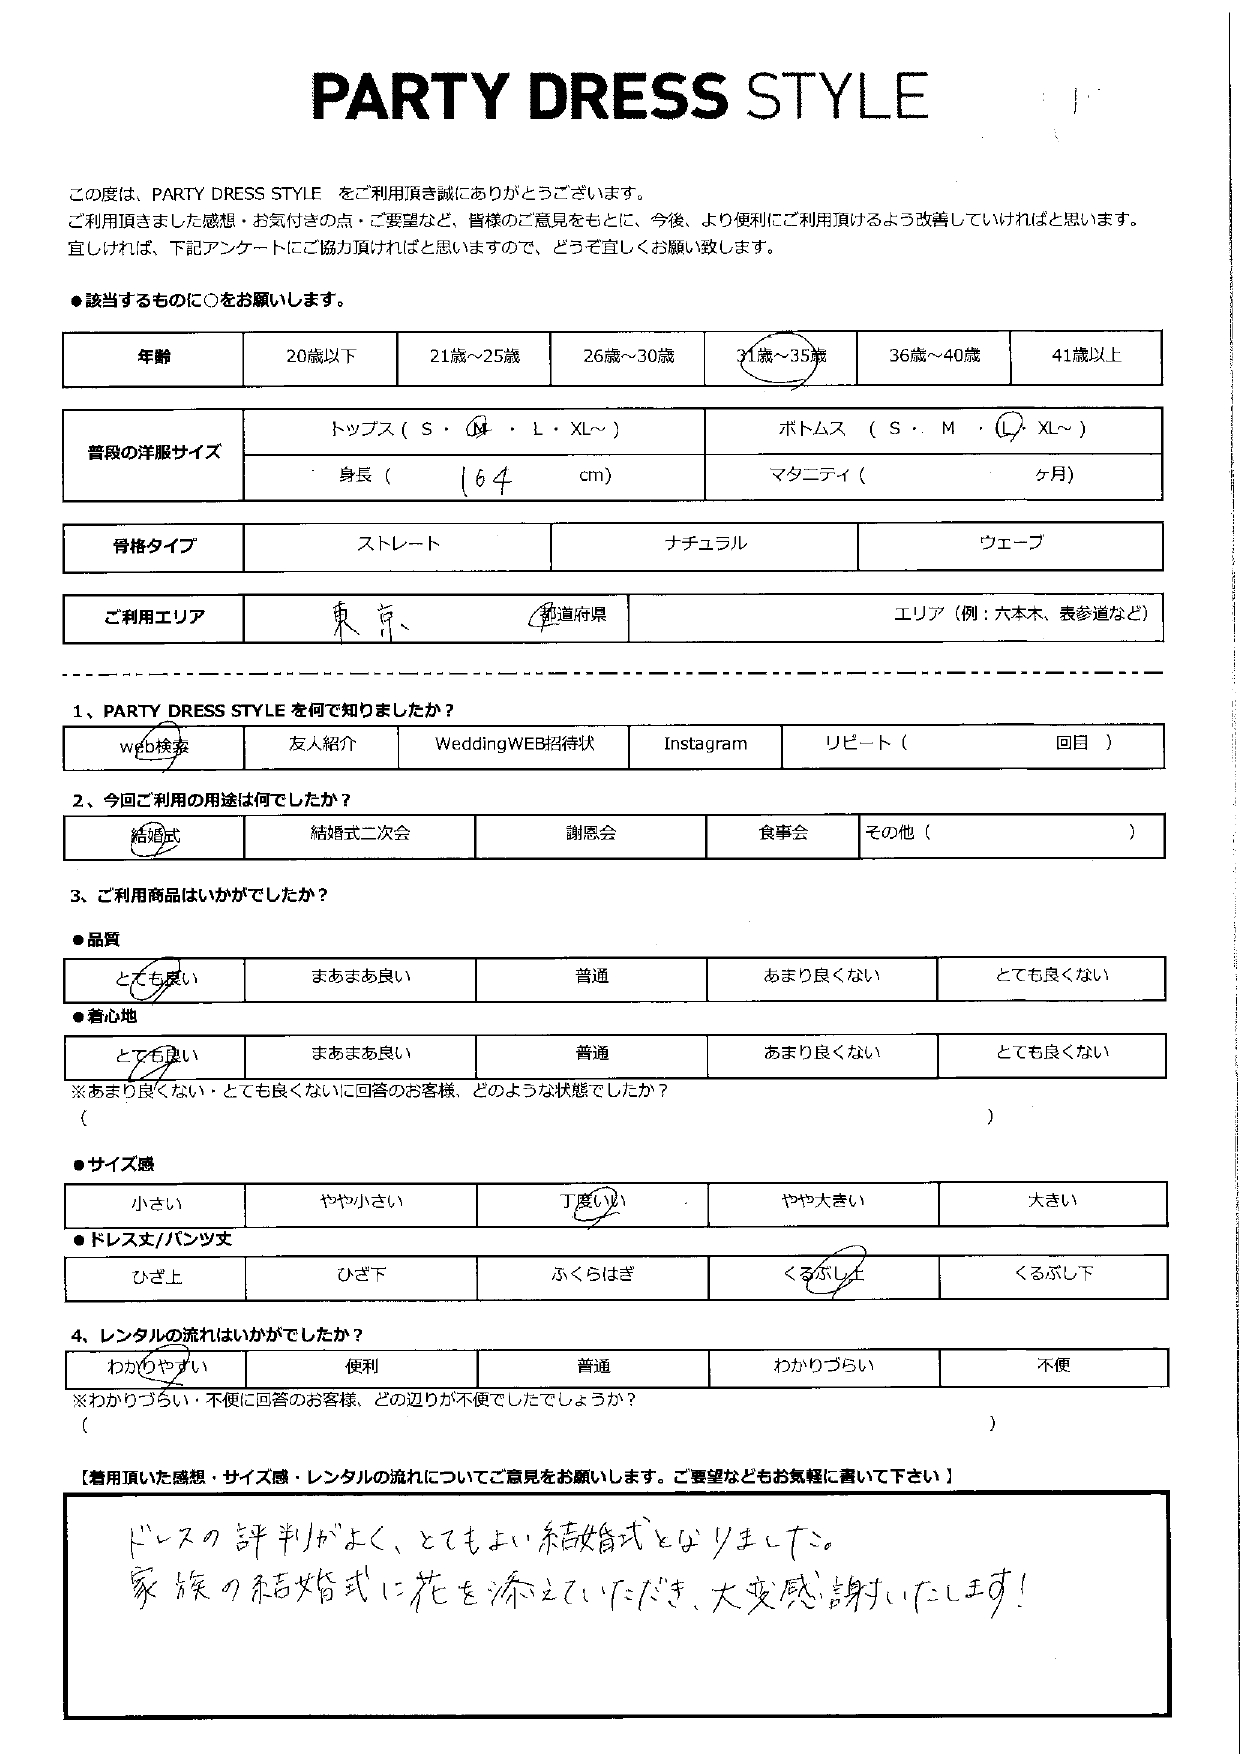 PARTY DRESS STYLE
この度は、PARTY DRESS STYLE をご利用頂き誠にありがとうございます。
ご利用頂きました感想・お気付きの点・ご要望など、皆様のご意見をもとに、今後、より便利にご利用頂けるよう改善していければと思います。
宜しければ、下記アンケートにご協力頂ければと思いますので、どうぞ宜しくお願い致します。
●該当するものに○をお願いします。
年齢 20歳以下 21歳～25歳 26歳～30歳 31歳～35歳 36歳～40歳 41歳以上
普段の洋服サイズ
トップス ( S ・ M ・ L ・ XL～ ) ボトムス ( S ・ M ・ L ・ XL～ )
身長 ( 164 cm) マタニティ ( ヶ月)
骨格タイプ ストレート ナチュラル ウェーブ
ご利用エリア 東京 都道府県 エリア（例：六本木、表参道など）
1、PARTY DRESS STYLE を何で知りましたか？
web検索 友人紹介 WeddingWEB招待状 Instagram リピート ( 回目 )
2、今回ご利用の用途は何でしたか？
結婚式 結婚式二次会 謝恩会 食事会 その他 ( )
3、ご利用商品はいかがでしたか？
●品質
とても良い まあまあ良い 普通 あまり良くない とても良くない
●着心地
とても良い まあまあ良い 普通 あまり良くない とても良くない
※あまり良くない・とても良くないに回答のお客様、どのような状態でしたか？
( )
●サイズ感
小さい やや小さい 丁度いい やや大きい 大きい
●ドレス丈/パンツ丈
ひざ上 ひざ下 ふくらはぎ くるぶし上 くるぶし下
4、レンタルの流れはいかがでしたか？
わかりやすい 便利 普通 わかりづらい 不便
※わかりづらい・不便に回答のお客様、どの辺りが不便でしたでしょうか？
( )
【着用頂いた感想・サイズ感・レンタルの流れについてご意見をお願いします。ご要望などもお気軽に書いて下さい】
ドレスの評判がよく、とてもよい結婚式となりました。
家族の結婚式に花を添えていただき、大変感謝いたします！